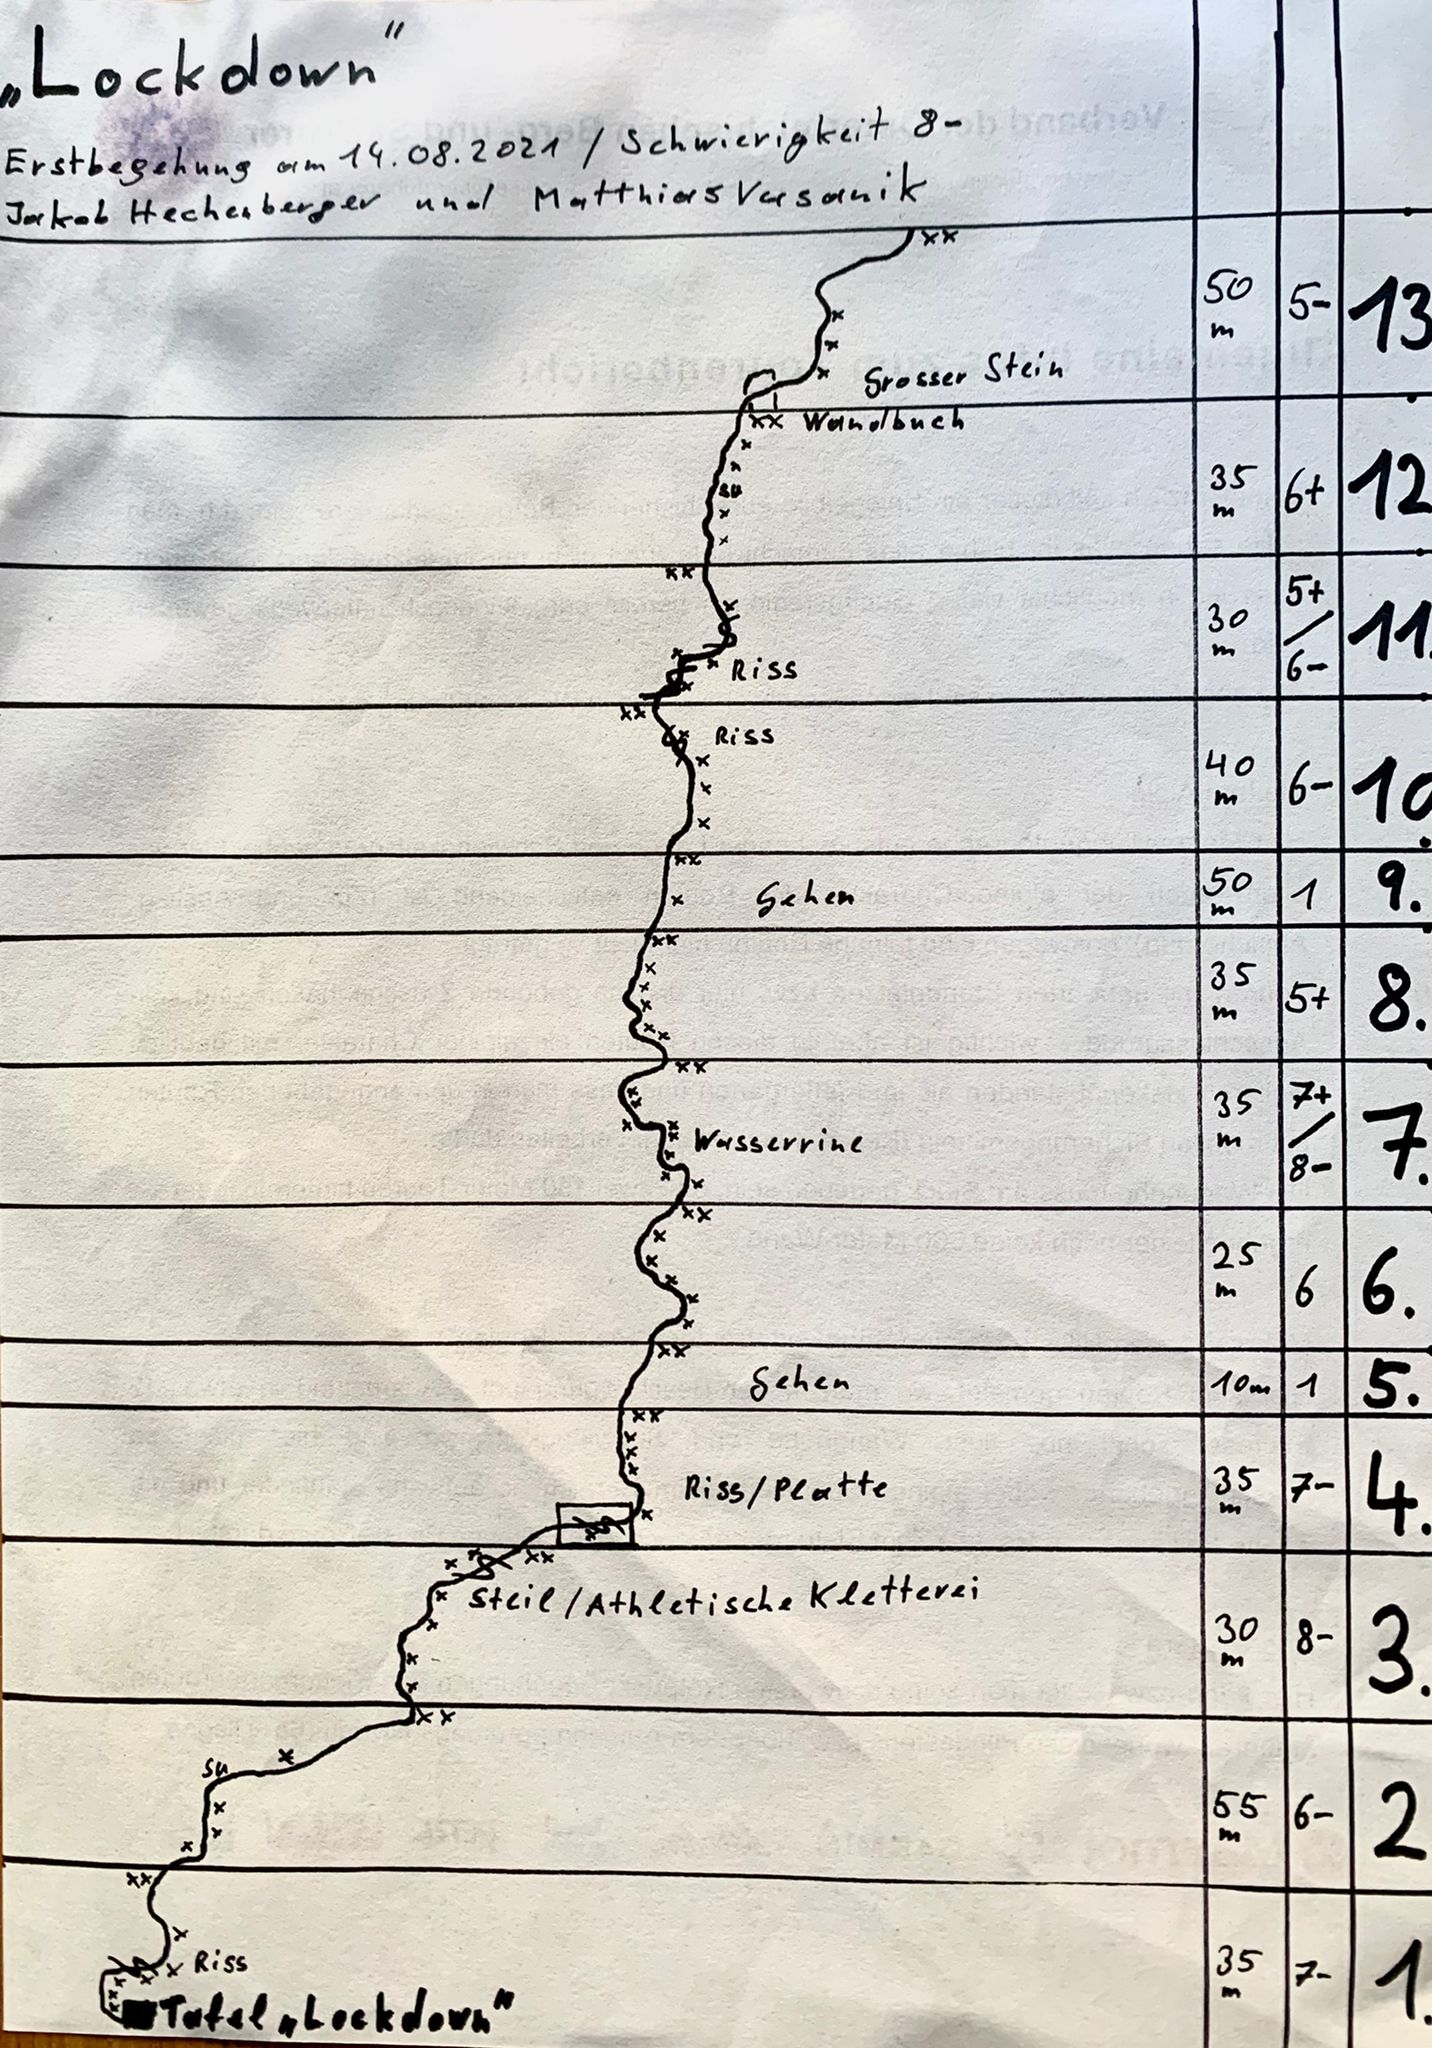 „Lockdown"
Erstbegehung am 14.08.2021 / Schwierigkeit 8-
Jakob Hechenberger und Matthias Versanik
50 m 5- 13
Grosser Stein
xx Wandbuch
su
35 m 6+ 12
30 m 5+/6- 11.
Riss
Riss
40 m 6- 10
Gehen 50 m 1 9.
35 m 5+ 8.
Wasserrine 35 m 7+/8- 7.
25 m 6 6.
Gehen 10m 1 5.
Riss/Platte 35 m 7- 4.
Steil/Athletische Kletterei
30 m 8- 3.
su
55 m 6- 2
Riss 35 m 7- 1.
Tafel „Lockdown"